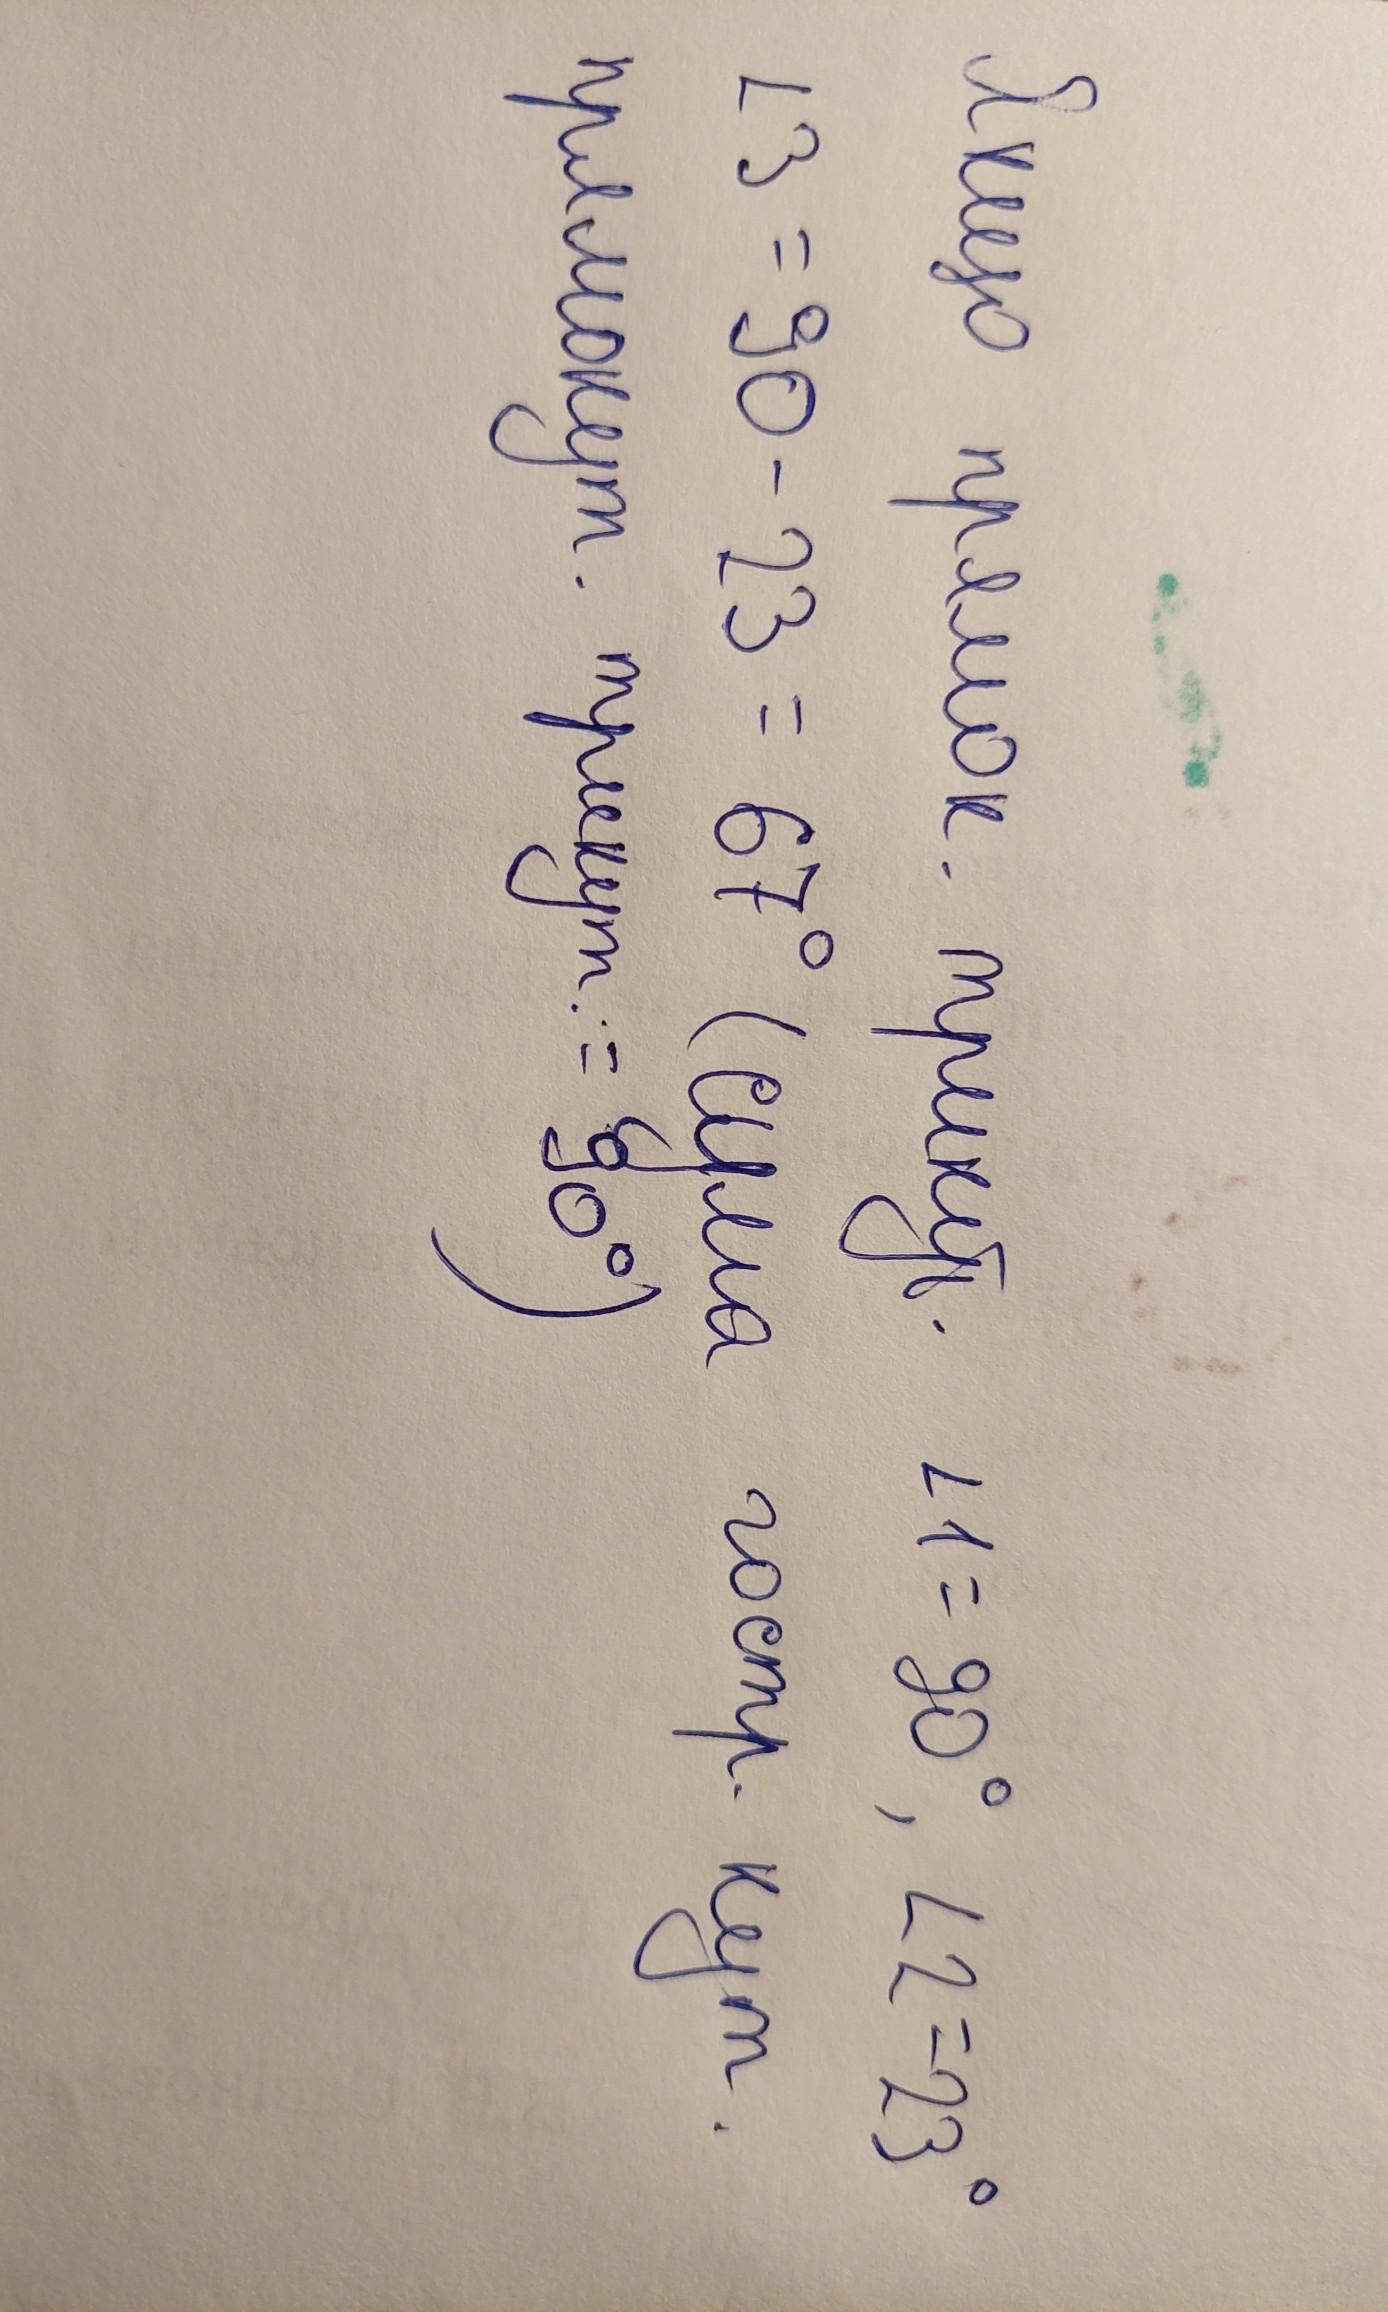 Якщо прямок. трикут. ∠1=90°, ∠2=23°
∠3=90-23=67° (сума гостр. кут.
прямокут. трикут.=90°)